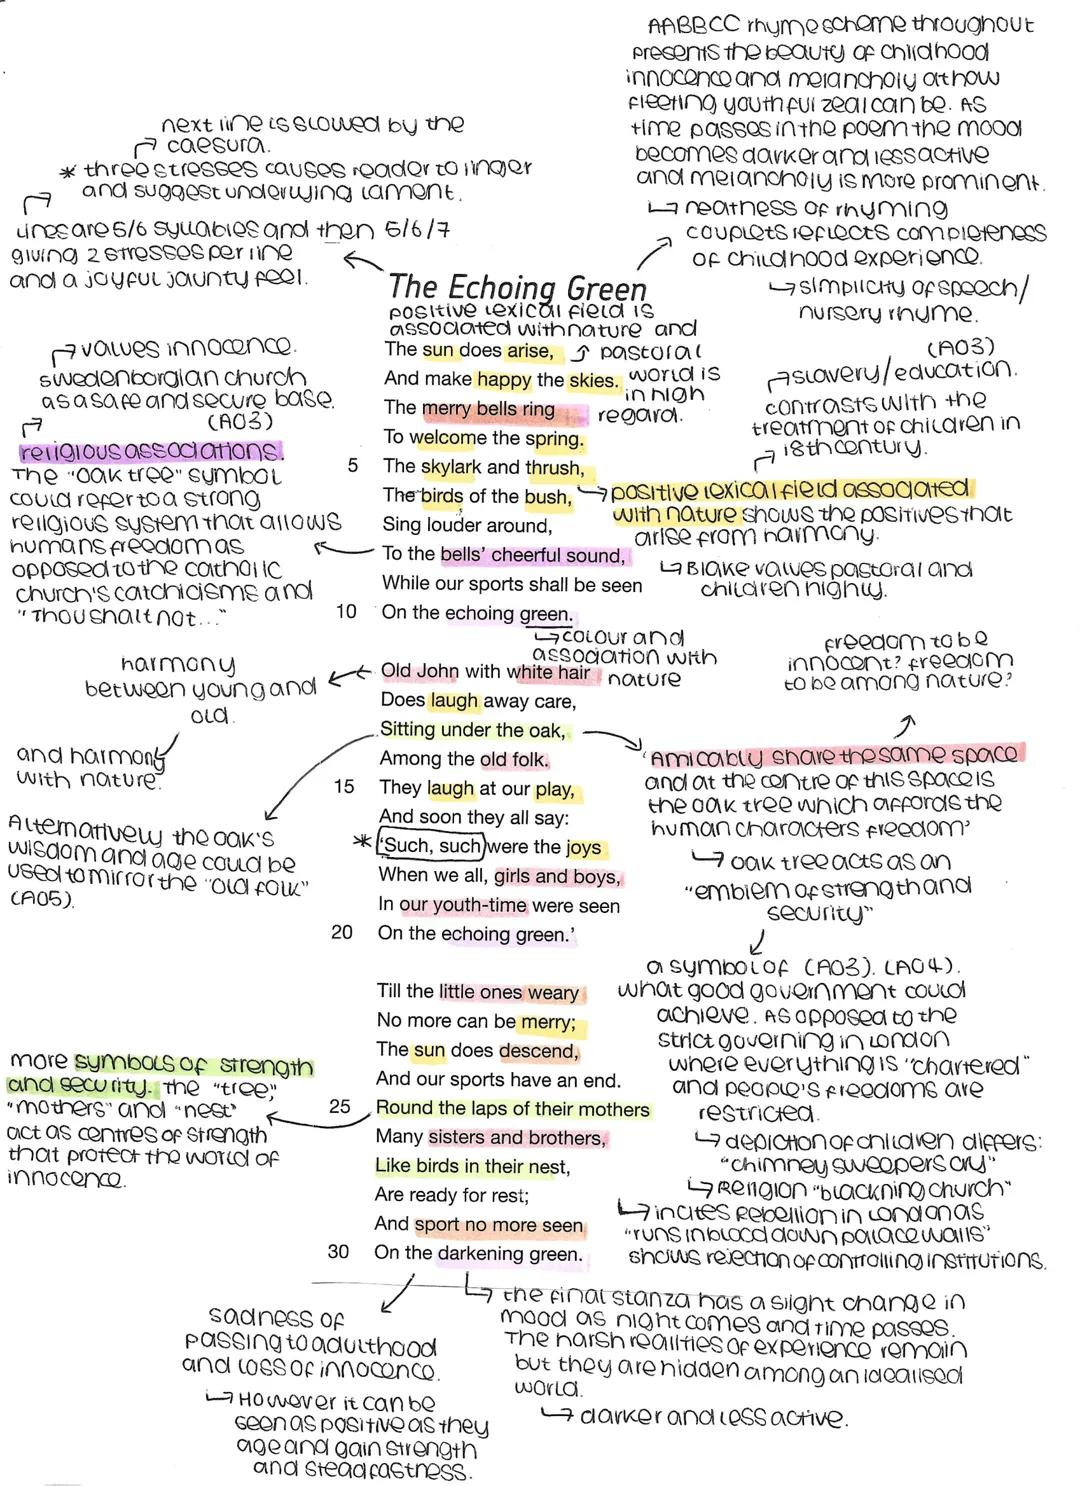 AABBCC rhyme scheme throughout
presents the beauty of childhood
innocence and melancholy at how
fleeting youthful zeal can be. As
time passes in the poem the mood
becomes darker and less active
and melancholy is more prominent.
↳ neatness of rhyming
couplets reflects completeness
of childhood experience.
↳ simplicity of speech/
nursery rhyme.
next line is slowed by the
caesura.
* three stresses causes reader to linger
and suggest underlying lament.
lines are 5/6 syllables and then 5/6/7
giving 2 stresses per line
and a joyful jaunty feel.
The Echoing Green
positive lexical field is
associated with nature and
pastoral
world is
in high
regard.
The sun does arise,
And make happy the skies.
The merry bells ring
To welcome the spring.
5 The skylark and thrush,
The birds of the bush,
Sing louder around,
To the bells' cheerful sound,
While our sports shall be seen
10 On the echoing green.
↳ colour and
association with
nature
values innocence.
swedenborgian church
as a safe and secure base.
(AO3)
religious associations.
The "oak tree" symbol
could refer to a strong
religious system that allows
humans freedom as
opposed to the catholic
church's catchicisms and
"Thou shalt not..."
(AO3)
slavery/education.
contrasts with the
treatment of children in
18th century.
positive lexical field associated
with nature shows the positives that
arise from harmony.
↳ Blake values pastoral and
children highly.
Old John with white hair
Does laugh away care,
Sitting under the oak,
Among the old folk.
15 They laugh at our play,
And soon they all say:
* 'Such, such were the joys
When we all, girls and boys,
In our youth-time were seen
20 On the echoing green.'
harmony
between young and
old.
and harmony
with nature.
Alternatively the oak's
wisdom and age could be
used to mirror the "old folk"
(AO5).
freedom to be
innocent? freedom
to be among nature?
'Amicably share the same space
and at the centre of this space is
the oak tree which affords the
human characters freedom'
↳ oak tree acts as an
"emblem of strength and
security"
a symbol of (AO3). (AO4).
what good government could
achieve. As opposed to the
strict governing in London
where everything is "chartered"
and people's freedoms are
restricted.
↳ depiction of children differs:
"chimney sweepers cry"
↳ Religion "blackning church"
↳ incites Rebellion in London as
"runs in blood down palace walls"
shows rejection of controlling institutions.
Till the little ones weary
No more can be merry;
The sun does descend,
And our sports have an end.
25 Round the laps of their mothers
Many sisters and brothers,
Like birds in their nest,
Are ready for rest;
And sport no more seen
30 On the darkening green.
more symbols of strength
and security. The "tree",
"mothers" and "nest"
act as centres of strength
that protect the world of
innocence.
sadness of
passing to adulthood
and loss of innocence.
↳ However it can be
seen as positive as they
age and gain strength
and steadfastness.
↳ the final stanza has a slight change in
mood as night comes and time passes.
The harsh realities of experience remain
but they are hidden among an idealised
world.
↳ darker and less active.